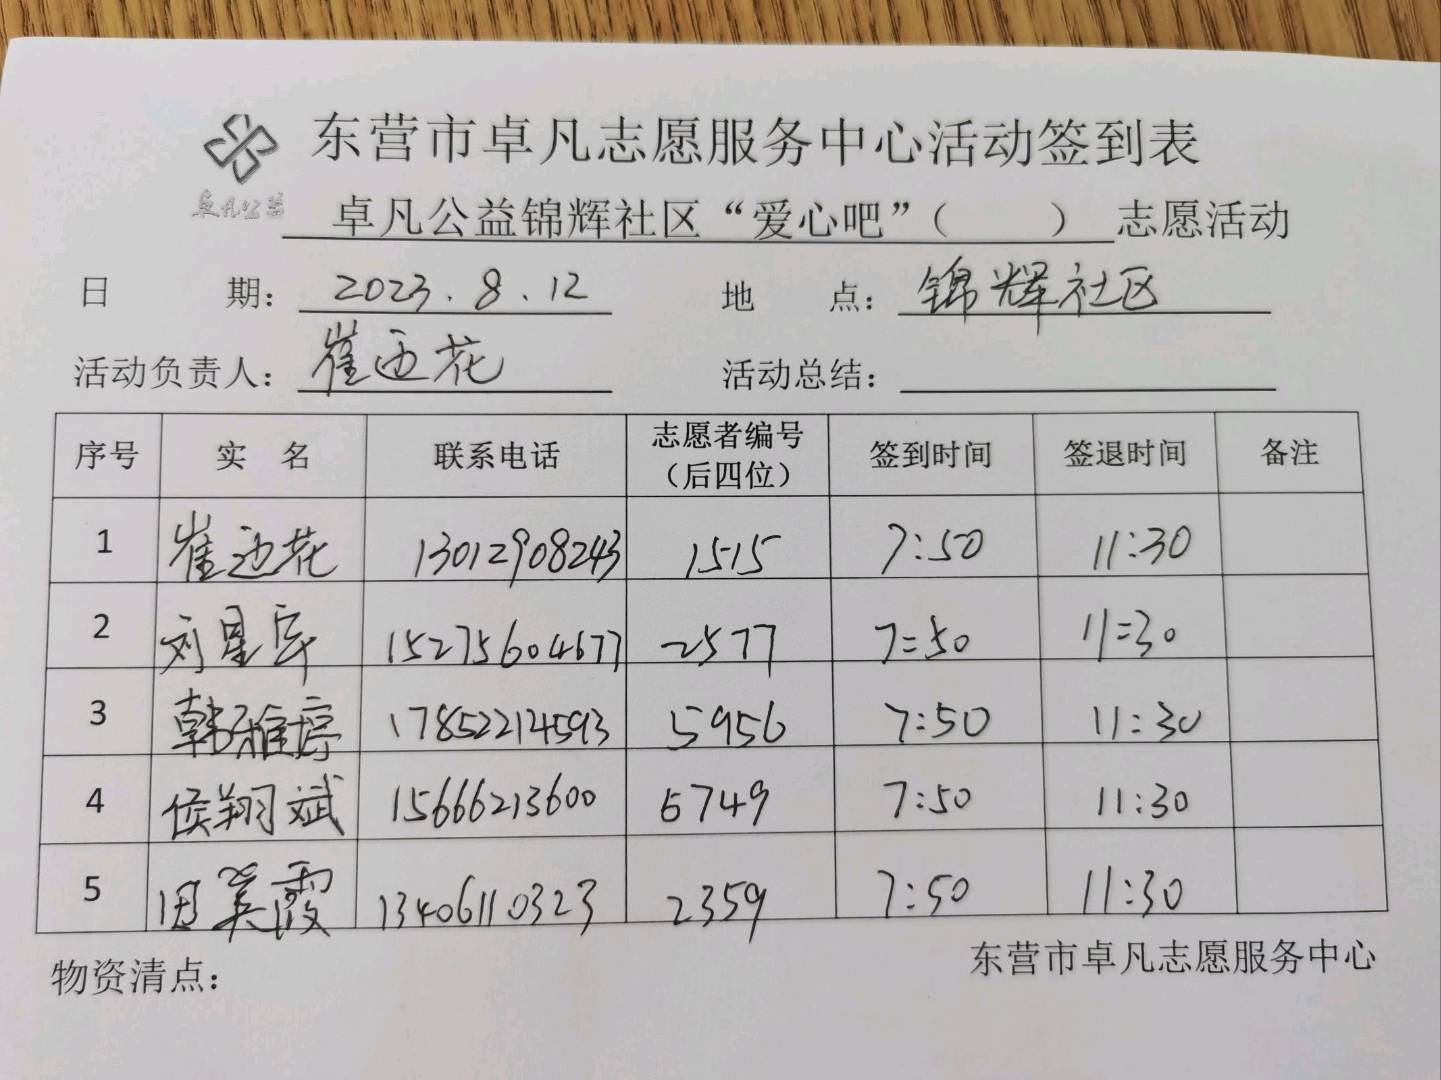 东营市卓凡志愿服务中心活动签到表
卓凡公益
卓凡公益锦辉社区“爱心吧”（　　）志愿活动
日 期： 2023.8.12 地 点： 锦辉社区
活动负责人： 崔迎花 活动总结：
序号 实 名 联系电话 志愿者编号（后四位） 签到时间 签退时间 备注
1 崔迎花 13012908243 1515 7:50 11:30
2 刘星 15275604677 2577 7:50 11:30
3 韩雅婷 17852214593 5956 7:50 11:30
4 侯翔斌 15666213600 6749 7:50 11:30
5 田英霞 13406110323 2359 7:50 11:30
物资清点： 东营市卓凡志愿服务中心